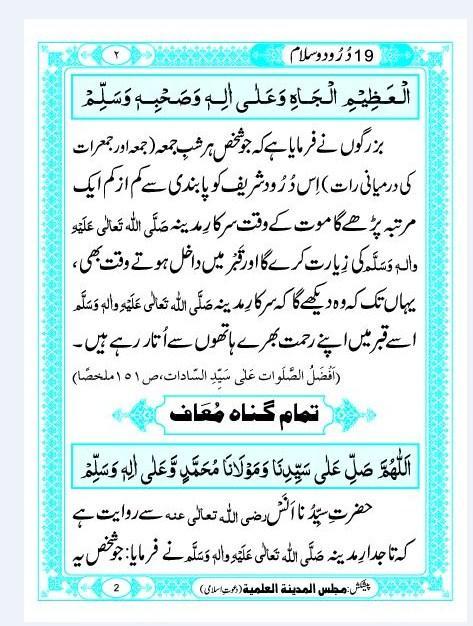 19 دُرُود و سلام
۲
الْعَظِیْمِ الْجَاہِ وَعَلٰی اٰلِہٖ وَصَحْبِہٖ وَسَلِّمْ
بزرگوں نے فرمایا ہے کہ جو شخص ہر شبِ جمعہ (جمعہ اور جمعرات
کی درمیانی رات) اِس دُرُود شریف کو پابندی سے کم از کم ایک
مرتبہ پڑھے گا موت کے وقت سرکارِ مدینہ صَلَّی اللہ تَعَالٰی عَلَیْہِ
واٰلہٖ وَسَلَّم کی زِیارت کرے گا اور قَبْر میں داخل ہوتے وقت بھی،
یہاں تک کہ وہ دیکھے گا کہ سرکارِ مدینہ صَلَّی اللہ تَعَالٰی عَلَیْہِ واٰلہٖ وَسَلَّم
اسے قبر میں اپنے رحمت بھرے ہاتھوں سے اُتار رہے ہیں۔
(اَفْضَلُ الصَّلَوات عَلٰی سَیِّدِ السَّادات،ص۱۵۱ملخصًا)
تمام گناہ مُعَاف
اَللّٰہُمَّ صَلِّ عَلٰی سَیِّدِنَا وَمَوْلَانَا مُحَمَّدٍ وَّعَلٰی اٰلِہٖ وَسَلِّمْ
حضرتِ سیِّدُنا اَنَس رضی اللہ تعالٰی عنہ سے روایت ہے
کہ تاجدارِ مدینہ صَلَّی اللہ تَعَالٰی عَلَیْہِ واٰلہٖ وَسَلَّم نے فرمایا: جو شخص یہ
پیشکش: مجلس المدینۃ العلمیۃ (دعوتِ اسلامی)
2